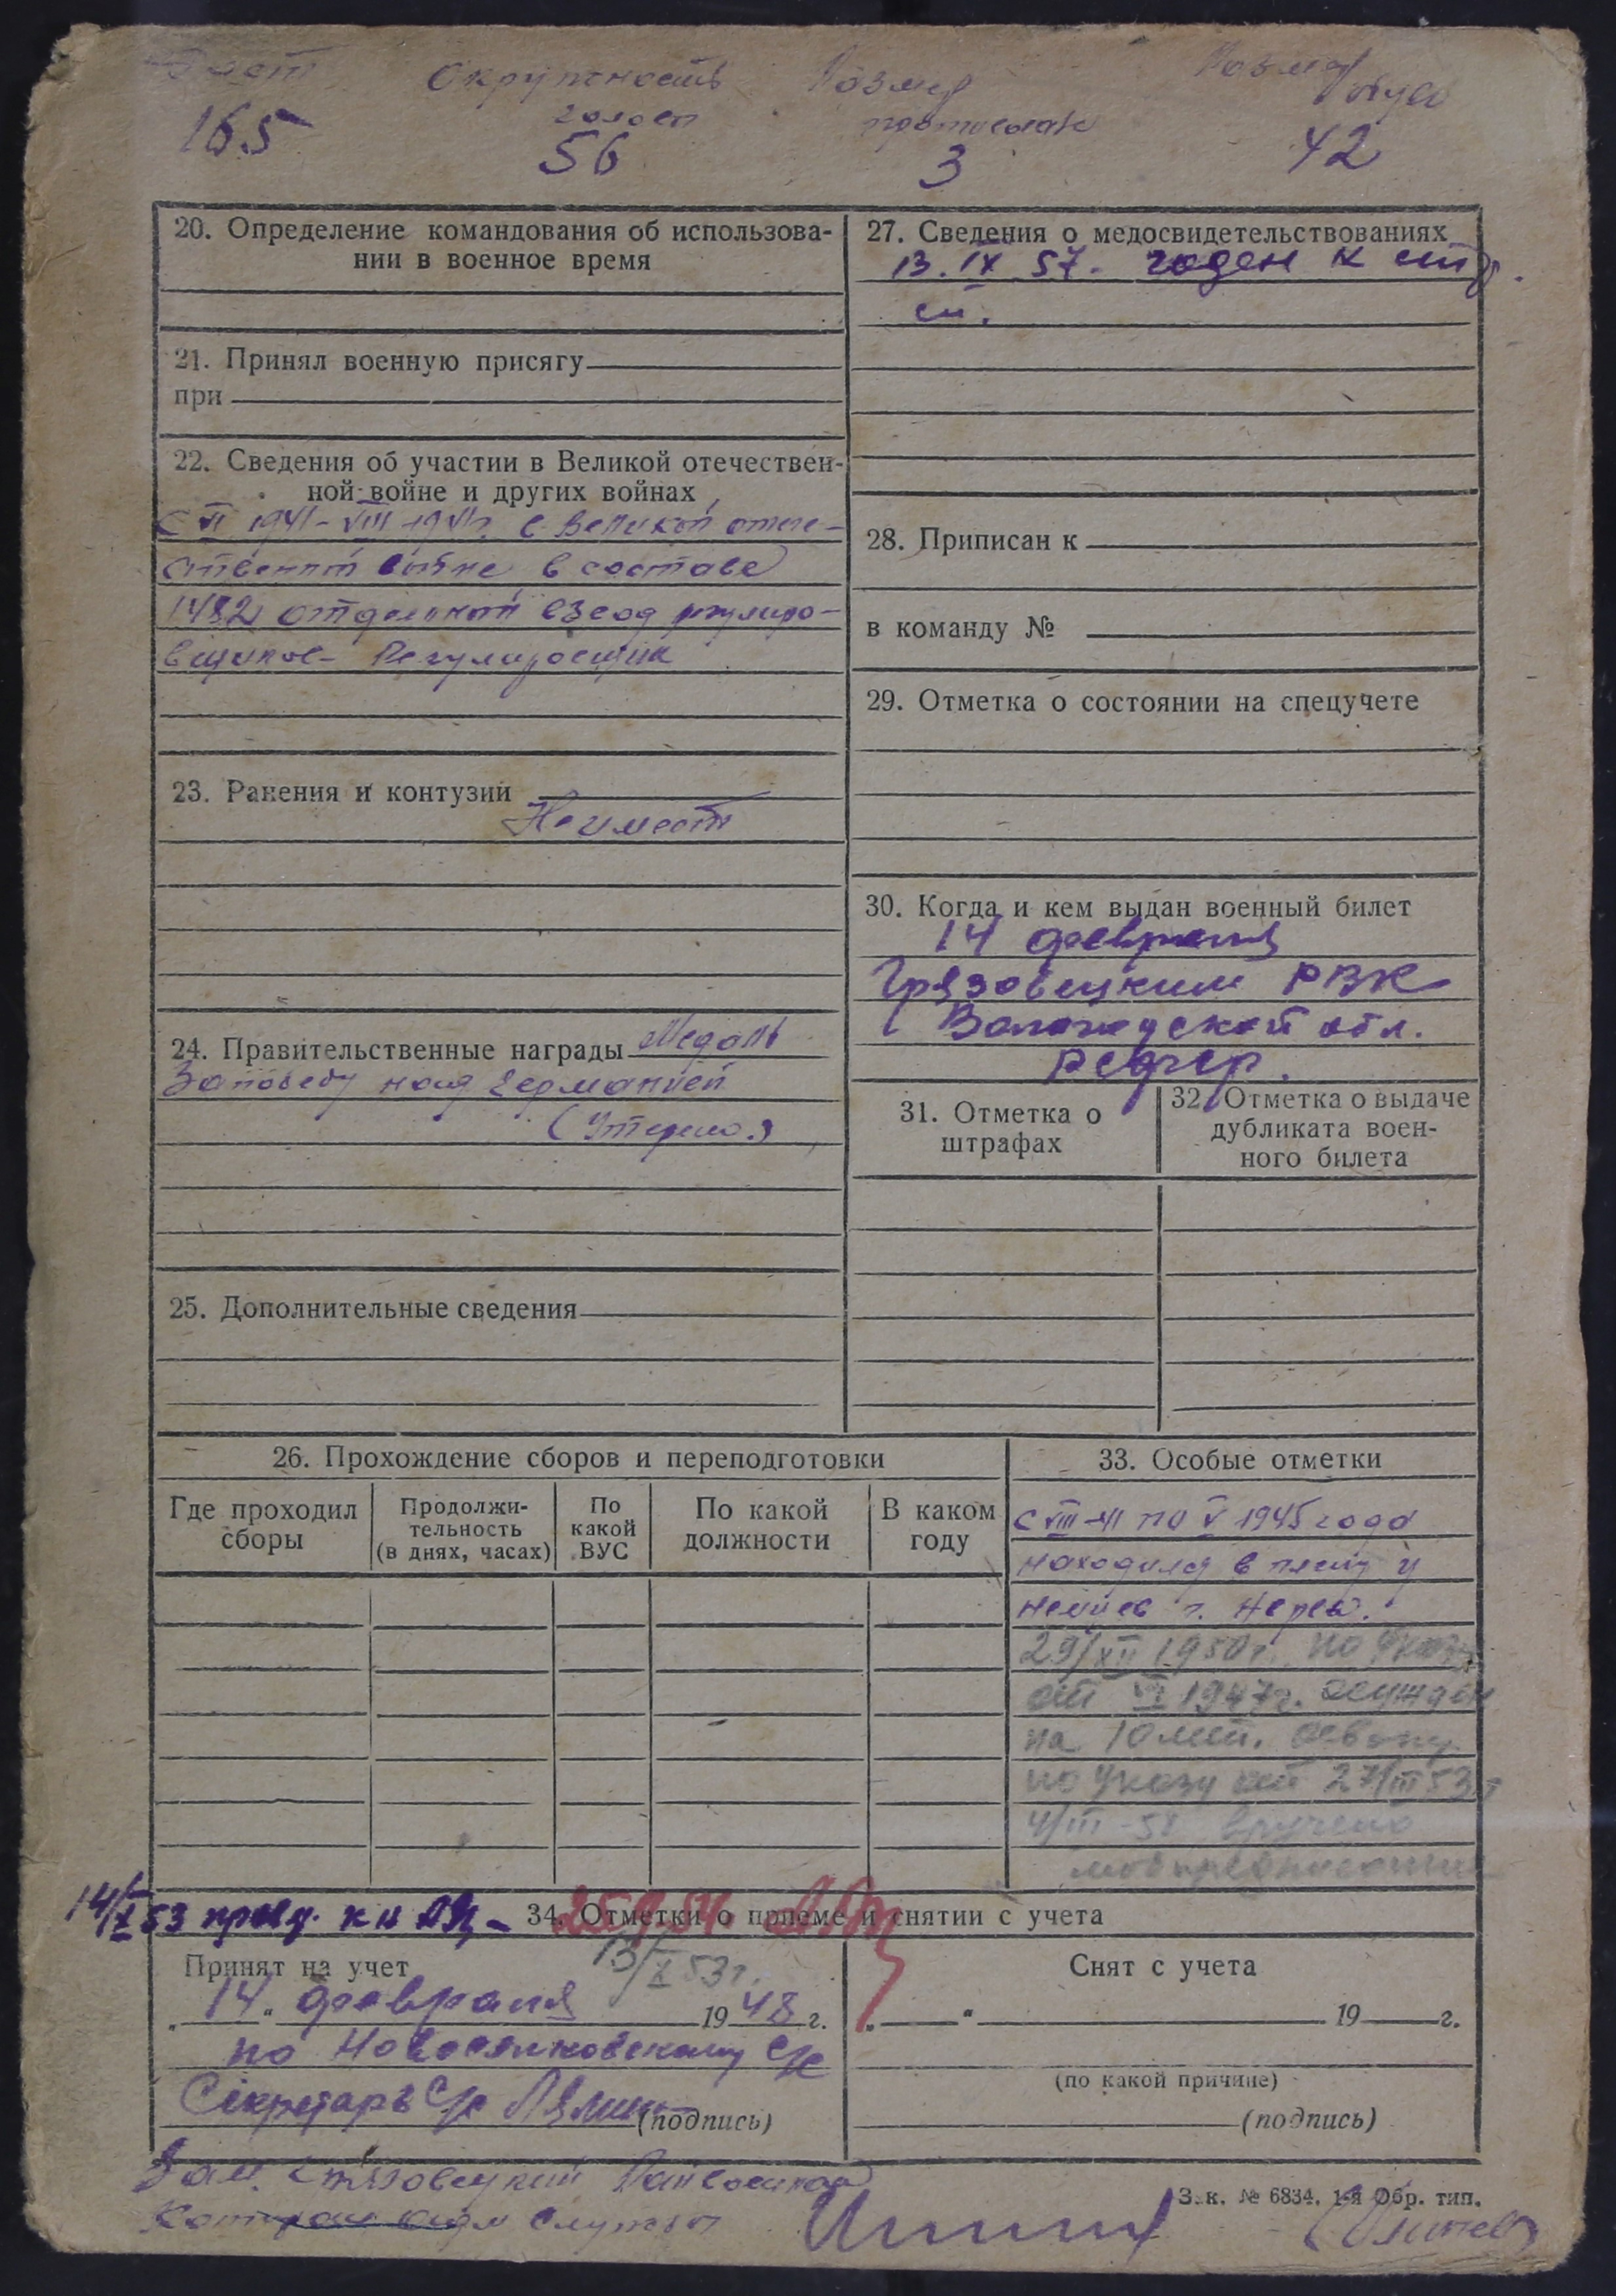 Рост Окружность Размер Размер
головы обуви
165 56 3 42
20. Определение командования об использова-
нии в военное время
21. Принял военную присягу
при
22. Сведения об участии в Великой отечествен-
ной войне и других войнах
С VI 1941 - VIII 1941г. в Великой отече-
ственной войне в составе
1482 отдельный взвод регулиро-
вщиков - Регулировщик
23. Ранения и контузии
Не имеет
24. Правительственные награды Медаль
За победу над Германией
(Утеряно)
25. Дополнительные сведения
27. Сведения о медосвидетельствованиях
13. IX 57. годен к стр.
сл.
28. Приписан к
в команду №
29. Отметка о состоянии на спецучете
30. Когда и кем выдан военный билет
14 февраля
Грязовецким РВК
Вологодской обл.
РСФСР.
31. Отметка о
штрафах
32. Отметка о выдаче
дубликата воен-
ного билета
26. Прохождение сборов и переподготовки
Где проходил
сборы
Продолжи-
тельность
(в днях, часах)
По
какой
ВУС
По какой
должности
В каком
году
33. Особые отметки
С VIII-41 по V 1945 года
находился в плену у
немцев г.
29/XII 1950г. по Указу
от VI 1947г. осужден
на 10 лет. освобож
по Указу от 27/III 53г
4/III-58 вручено
мобпредписание
14/X 53
34. Отметки о приеме и снятии с учета
13/X 53г.
Принят на учет
„ 14 „ февраля 1948 г.
по Новоселковскому с/с
Секретарь с/с (подпись)
Снят с учета
„ “ 19 г.
(по какой причине)
(подпись)
Грязовецкий
службы
Зак. № 6834. 1-я Обр. тип.